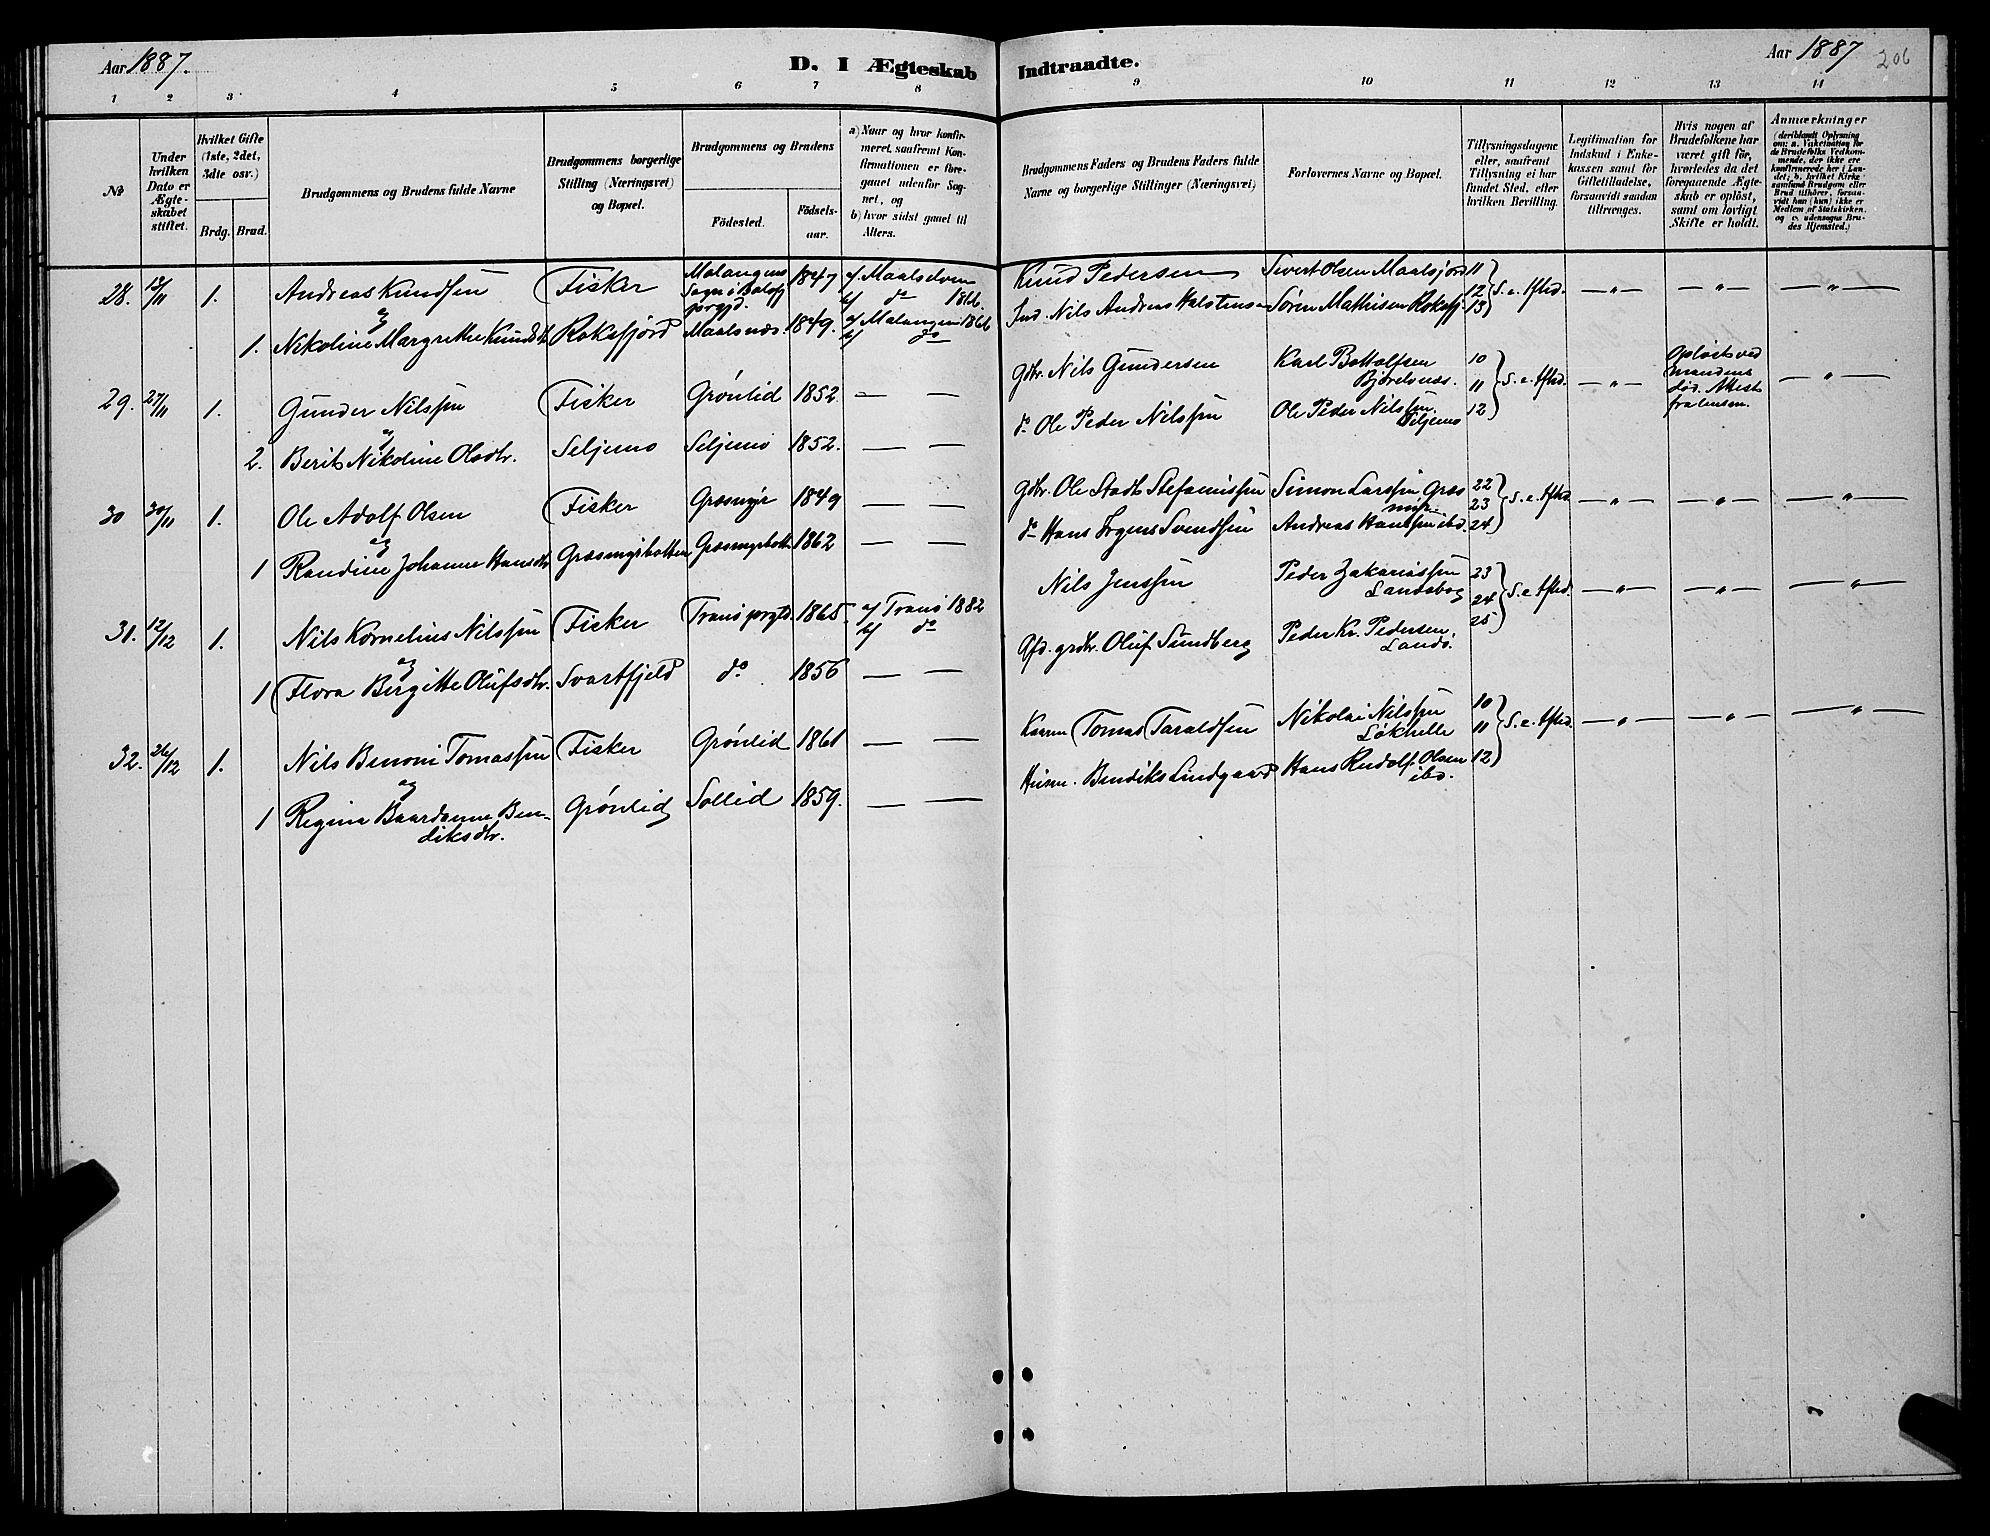 Aar 1887.
D. I Ægteskab Indtraadte.
Aar 1887
206
1 2 3 4 5 6 7 8 9 10 11 12 13 14
No
Under hvilken Dato er Ægteskabet stiftet.
Hvilket Gifte (1ste, 2det, 3die osv.)
Brdg. Brud.
Brudgommens og Brudens fulde Navne
Brudgommens borgerlige Stilling (Næringsvei) og Bopæl.
Brudgommens og Brudens
Födested.
Födsels-aar.
a) Naar og hvor konfirmeret, saafremt Konfirmationen er foregaaet udenfor Sognet, og
b) hvor sidst gaaet til Alters.
Brudgommens Faders og Brudens Faders fulde Navne og borgerlige Stillinger (Næringsvei)
Forlovernes Navne og Bopæl.
Tillysningsdagene eller, saafremt Tillysning ei har fundet Sted, efter hvilken Bevilling.
Legitimation for Indskud i Enkekassen samt for Giftetilladelse, forsaavidt saadan tiltrænges.
Hvis nogen af Brudefolkene har været gift för, hvorledes da det foregaaende Ægteskab er oplöst, samt om lovligt Skifte er holdt.
Anmærkninger
(deriblandt Oplysning om: a. Vaksination for de Brudefolks Vedkommende, der ikke ere konfirmerede her i Landet; b. hvilket Kirkesamfund Brudgom eller Brud tilhörer, forsaavidt han (hun) ikke er Medlem af Statskirken, og c. udensogns Brudes Hjemsted.)
28. 13/11 1. Andreas Knudsen Fisker Malangens Sogn i Balsfj. prgjd. 1847 a/ Maalselven 1866. b/ do Knud Pedersen Sivert Olsen Maalsjord 11 12 13 S. e. Afhd. — " — — " — — " —
og
1. Nikoline Margrethe Knudsdt Roksfjörd Maalsnæs. 1849. a/ Malangen 1866 b/ do Ind. Nils Andreas Halstensen Sören Mathisen Roksfj.
29. 27/11 1. Gunder Nilssen Fisker Grönlid 1852. — — Gbr. Nils Gundersen Karl Bottolfsen Bjorelvnæs. 10 11 12 S. e. Afhd. — " — Oplöst ved Mandens död. Attest fra lensm. — " —
og
2. Berit Nikoline Olsdtr. Seljemo Seljemo 1852. — — do Ole Peder Nilssen Ole Peder Nilssen. Seljemo
30 30/11 1. Ole Adolf Olsen Fisker Græsmyr 1849 — — Gbr. Ole Stadt Stefanussen Simon Larssen Græsmyr 22 23 24 S. e. Afhd — " — — " — — " —
og
1 Randine Johanne Hansdtr Græsmyrbotten Græsmyrbotten 1862 — — do Hans Jrgens Svendsen Andreas Hanssen ibd.
31. 12/12 1. Nils Kornelius Nilssen Fisker Tranö prgjd. 1865. a/ Tranö 1882 b/ do Nils Jenssen Peder Zakariassen 23 24 25 S. e. Afhd. — " — — " — — " —
og
1 Flora Birgitte Olufsdtr. Svartfjeld do 1856 — — Afd. grdbr. Oluf Sundberg Peder Kr. Pedersen.
32. 26/12 1. Nils Benoni Tomassen Fisker Grönlid 1861 — — Tomas Taraldsen Nikolai Nilssen Løkhelle 10 11 12 S. e. Afhd. — " — — " — — " —
og
1 Regina Baardanne Bendiksdtr. Grönlid Sollid 1859. — — Husm. Bendiks Lindgaard Hans Rudolf Olsen ibd.